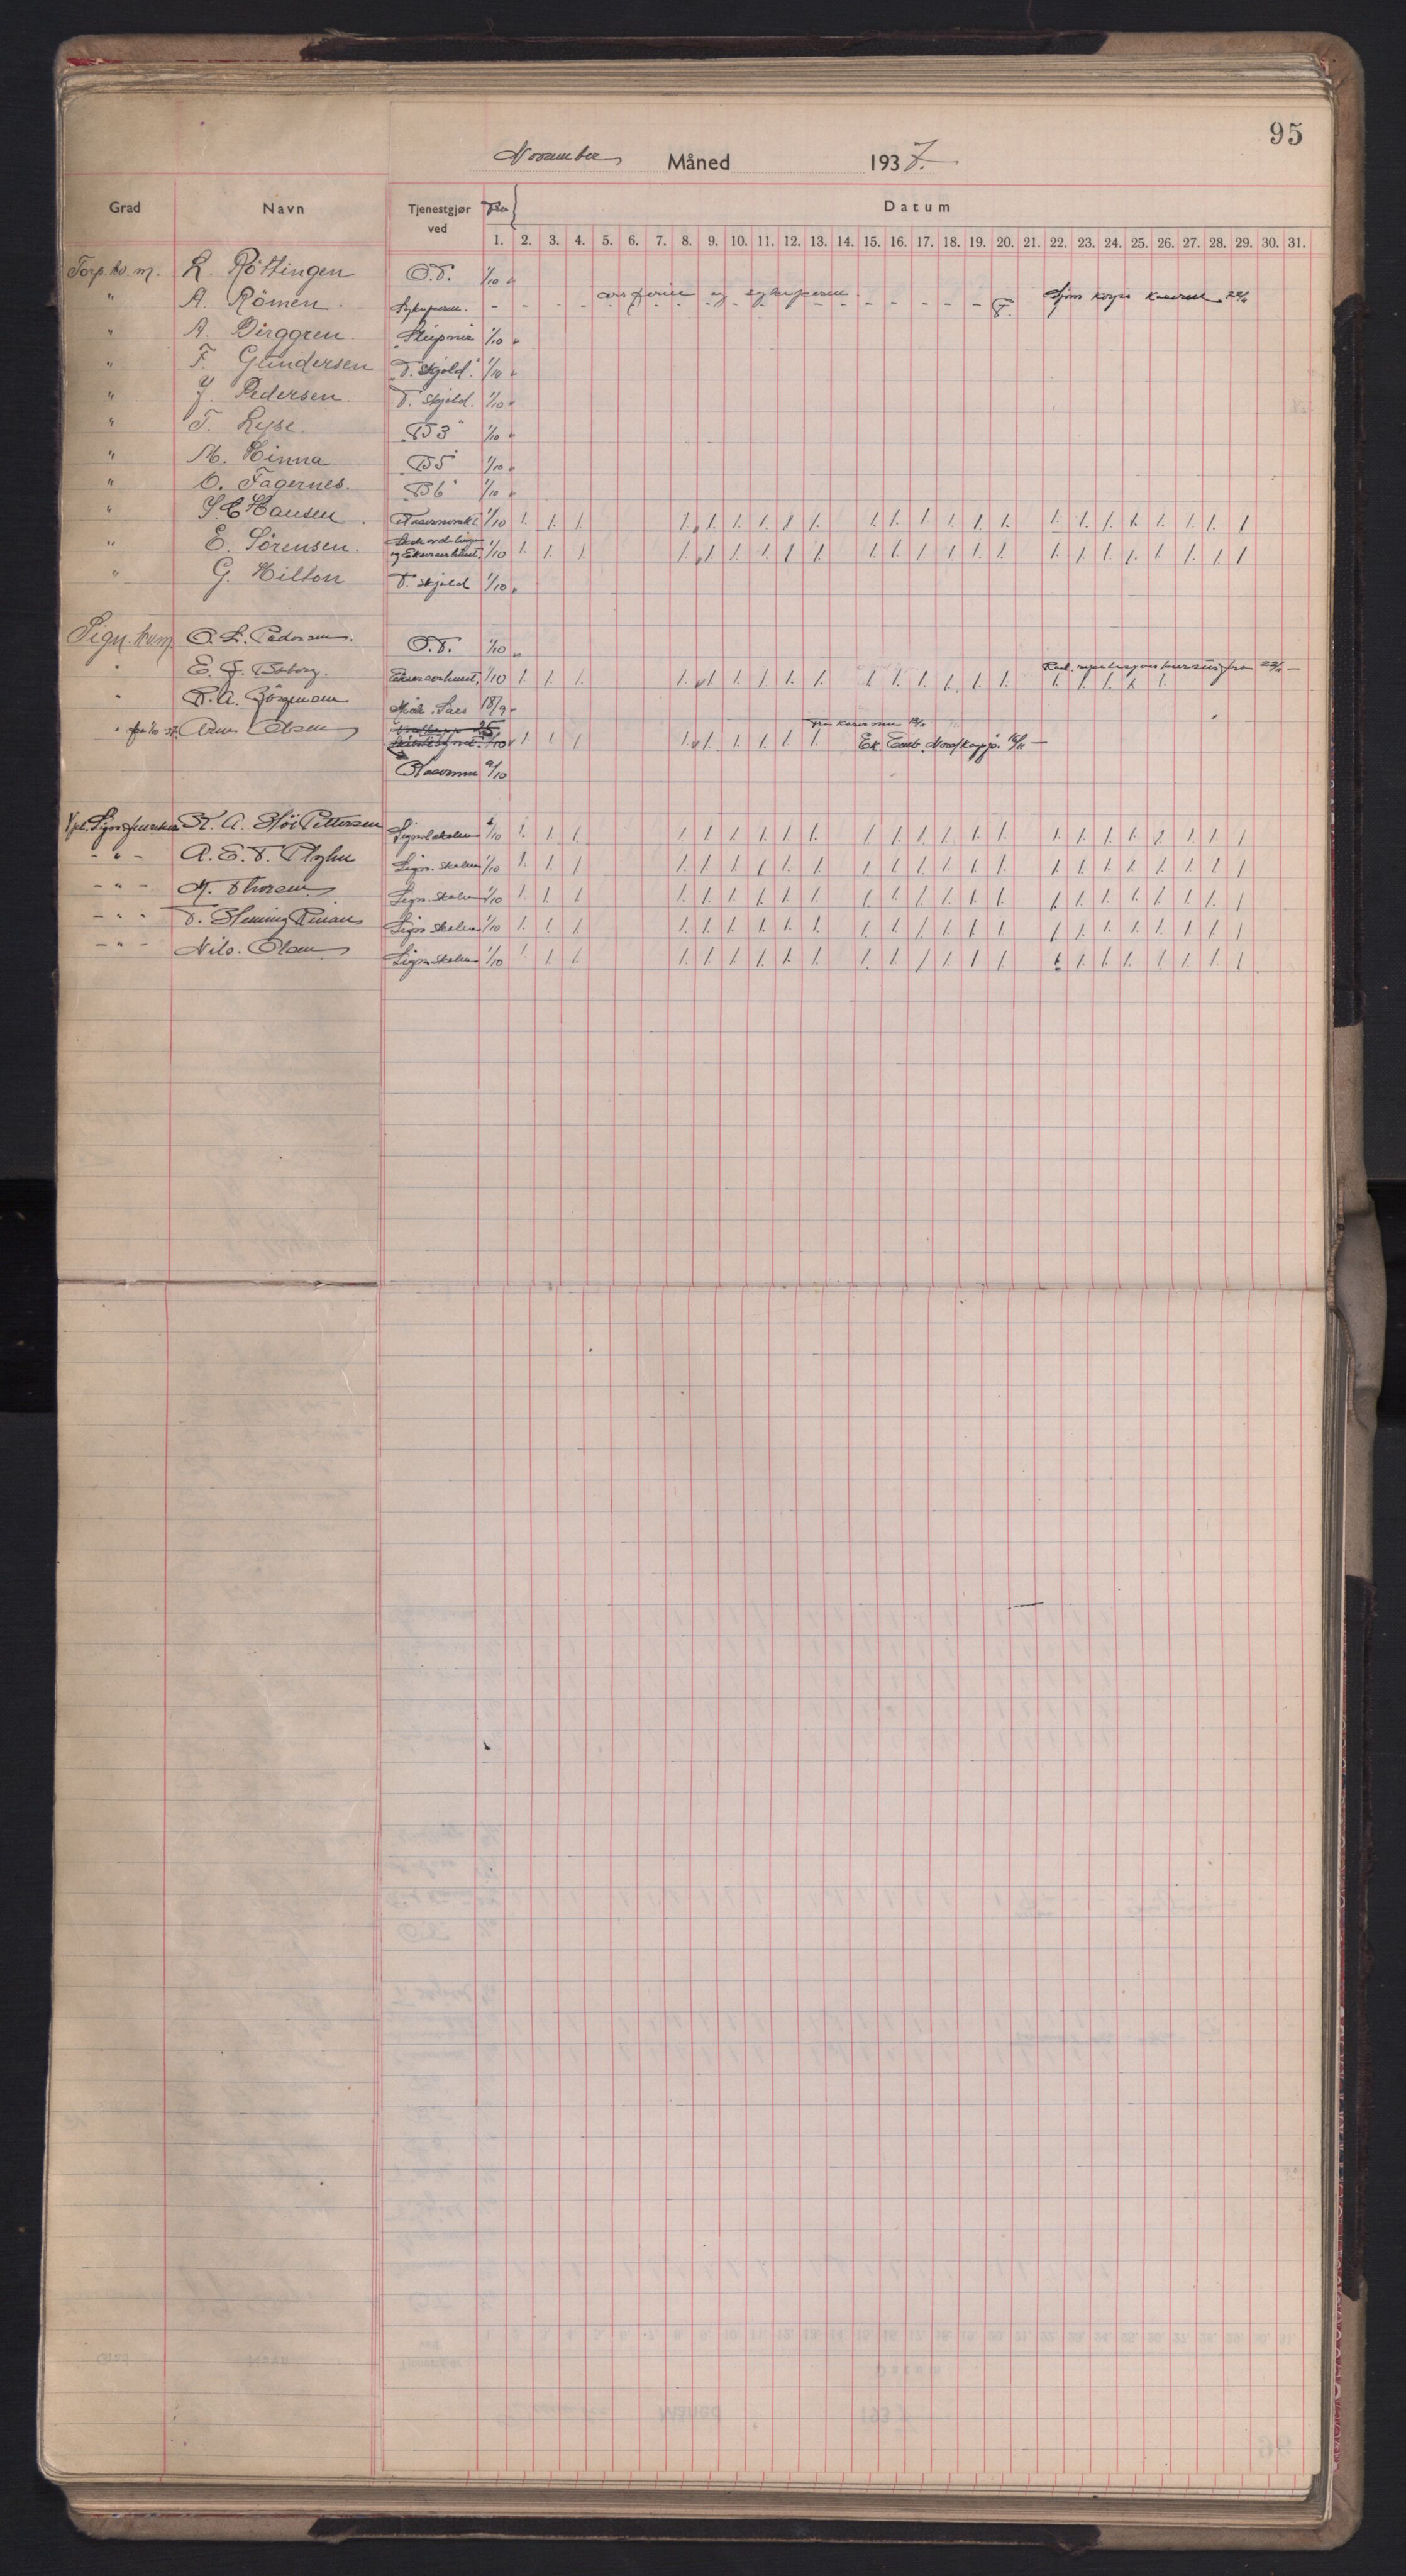 95
November Måned 1937.
Grad Navn Tjenestgjør ved Fra Datum
1. 2. 3. 4. 5. 6. 7. 8. 9. 10. 11. 12. 13. 14. 15. 16. 17. 18. 19. 20. 21. 22. 23. 24. 25. 26. 27. 28. 29. 30. 31.
Torp.kv.m. L. Röttingen O.T. 1/10 "
" A. Römen. Sykeperm. - - - - årsferie og sykeperm. - - - - - F. Sjøm korps kaserne 22/11
" A. Birggren. "Sleipner 1/10 "
" F. Gundersen "T. Skjold" 1/10 "
" J. Pedersen. T. Skjold. 1/10 "
" T. Lyse. "B3" 1/10 "
" M. Hinna "B5" 1/10 "
" O. Fagernes. "B6" 1/10 "
" S.C. Hansen. 1/10 1. 1. 1. 1. 1. 1. 1. 1. 1. 1. 1. 1. 1. 1. 1. 1. 1. 1. 1. 1. 1. 1. 1
" E. Sörensen. og Ekserserhuset. 1/10 1. 1. 1. 1. 1. 1. 1. 1. 1. 1. 1. 1. 1. 1. 1. 1. 1. 1. 1. 1. 1. 1. 1
" G. Hilton T. Skjold 1/10 "
Sign.kvm. O. L. Pedersen. O.T. 1/10 "
" E. J. Ekserserhuset. 1/10 1. 1. 1. 1. 1. 1. 1. 1. 1. 1. 1. 1. 1. 1. 1. 1. 1. 1. 1. 1. Rad. repetisjonskursus fra 22/11 —
" A. Jörgensen Mich. Sars 18/9 "
" fra 1/10 37. Arne Olsen 1/10 1. 1. 1. 1. 1. 1. 1. 1. 1. Fra kasernen Ek. Emb. Nordkapp. 16/11 —
Kasernen 9/10
Vpl. Sign. K. A. Höi Pettersen Signalskolen 1/10 1. 1. 1. 1. 1. 1. 1. 1. 1. 1. 1. 1. 1. 1. 1. 1. 1. 1. 1. 1. 1. 1. 1
- " - A. E. T. Sign. Skolen 1/10 1. 1. 1. 1. 1. 1. 1. 1. 1. 1. 1. 1. 1. 1. 1. 1. 1. 1. 1. 1. 1. 1. 1
- " - M. Thoresen Sign. Skolen 1/10 1. 1. 1. 1. 1. 1. 1. 1. 1. 1. 1. 1. 1. 1. 1. 1. 1. 1. 1. 1. 1. 1. 1
- " - T. Sign Skolen 1/10 1. 1. 1. 1. 1. 1. 1. 1. 1. 1. 1. 1. 1. 1. 1. 1. 1. 1. 1. 1. 1. 1. 1
- " - Nils. Olsen Sign Skolen 1/10 1. 1. 1. 1. 1. 1. 1. 1. 1. 1. 1. 1. 1. 1. 1. 1. 1. 1. 1. 1. 1. 1. 1